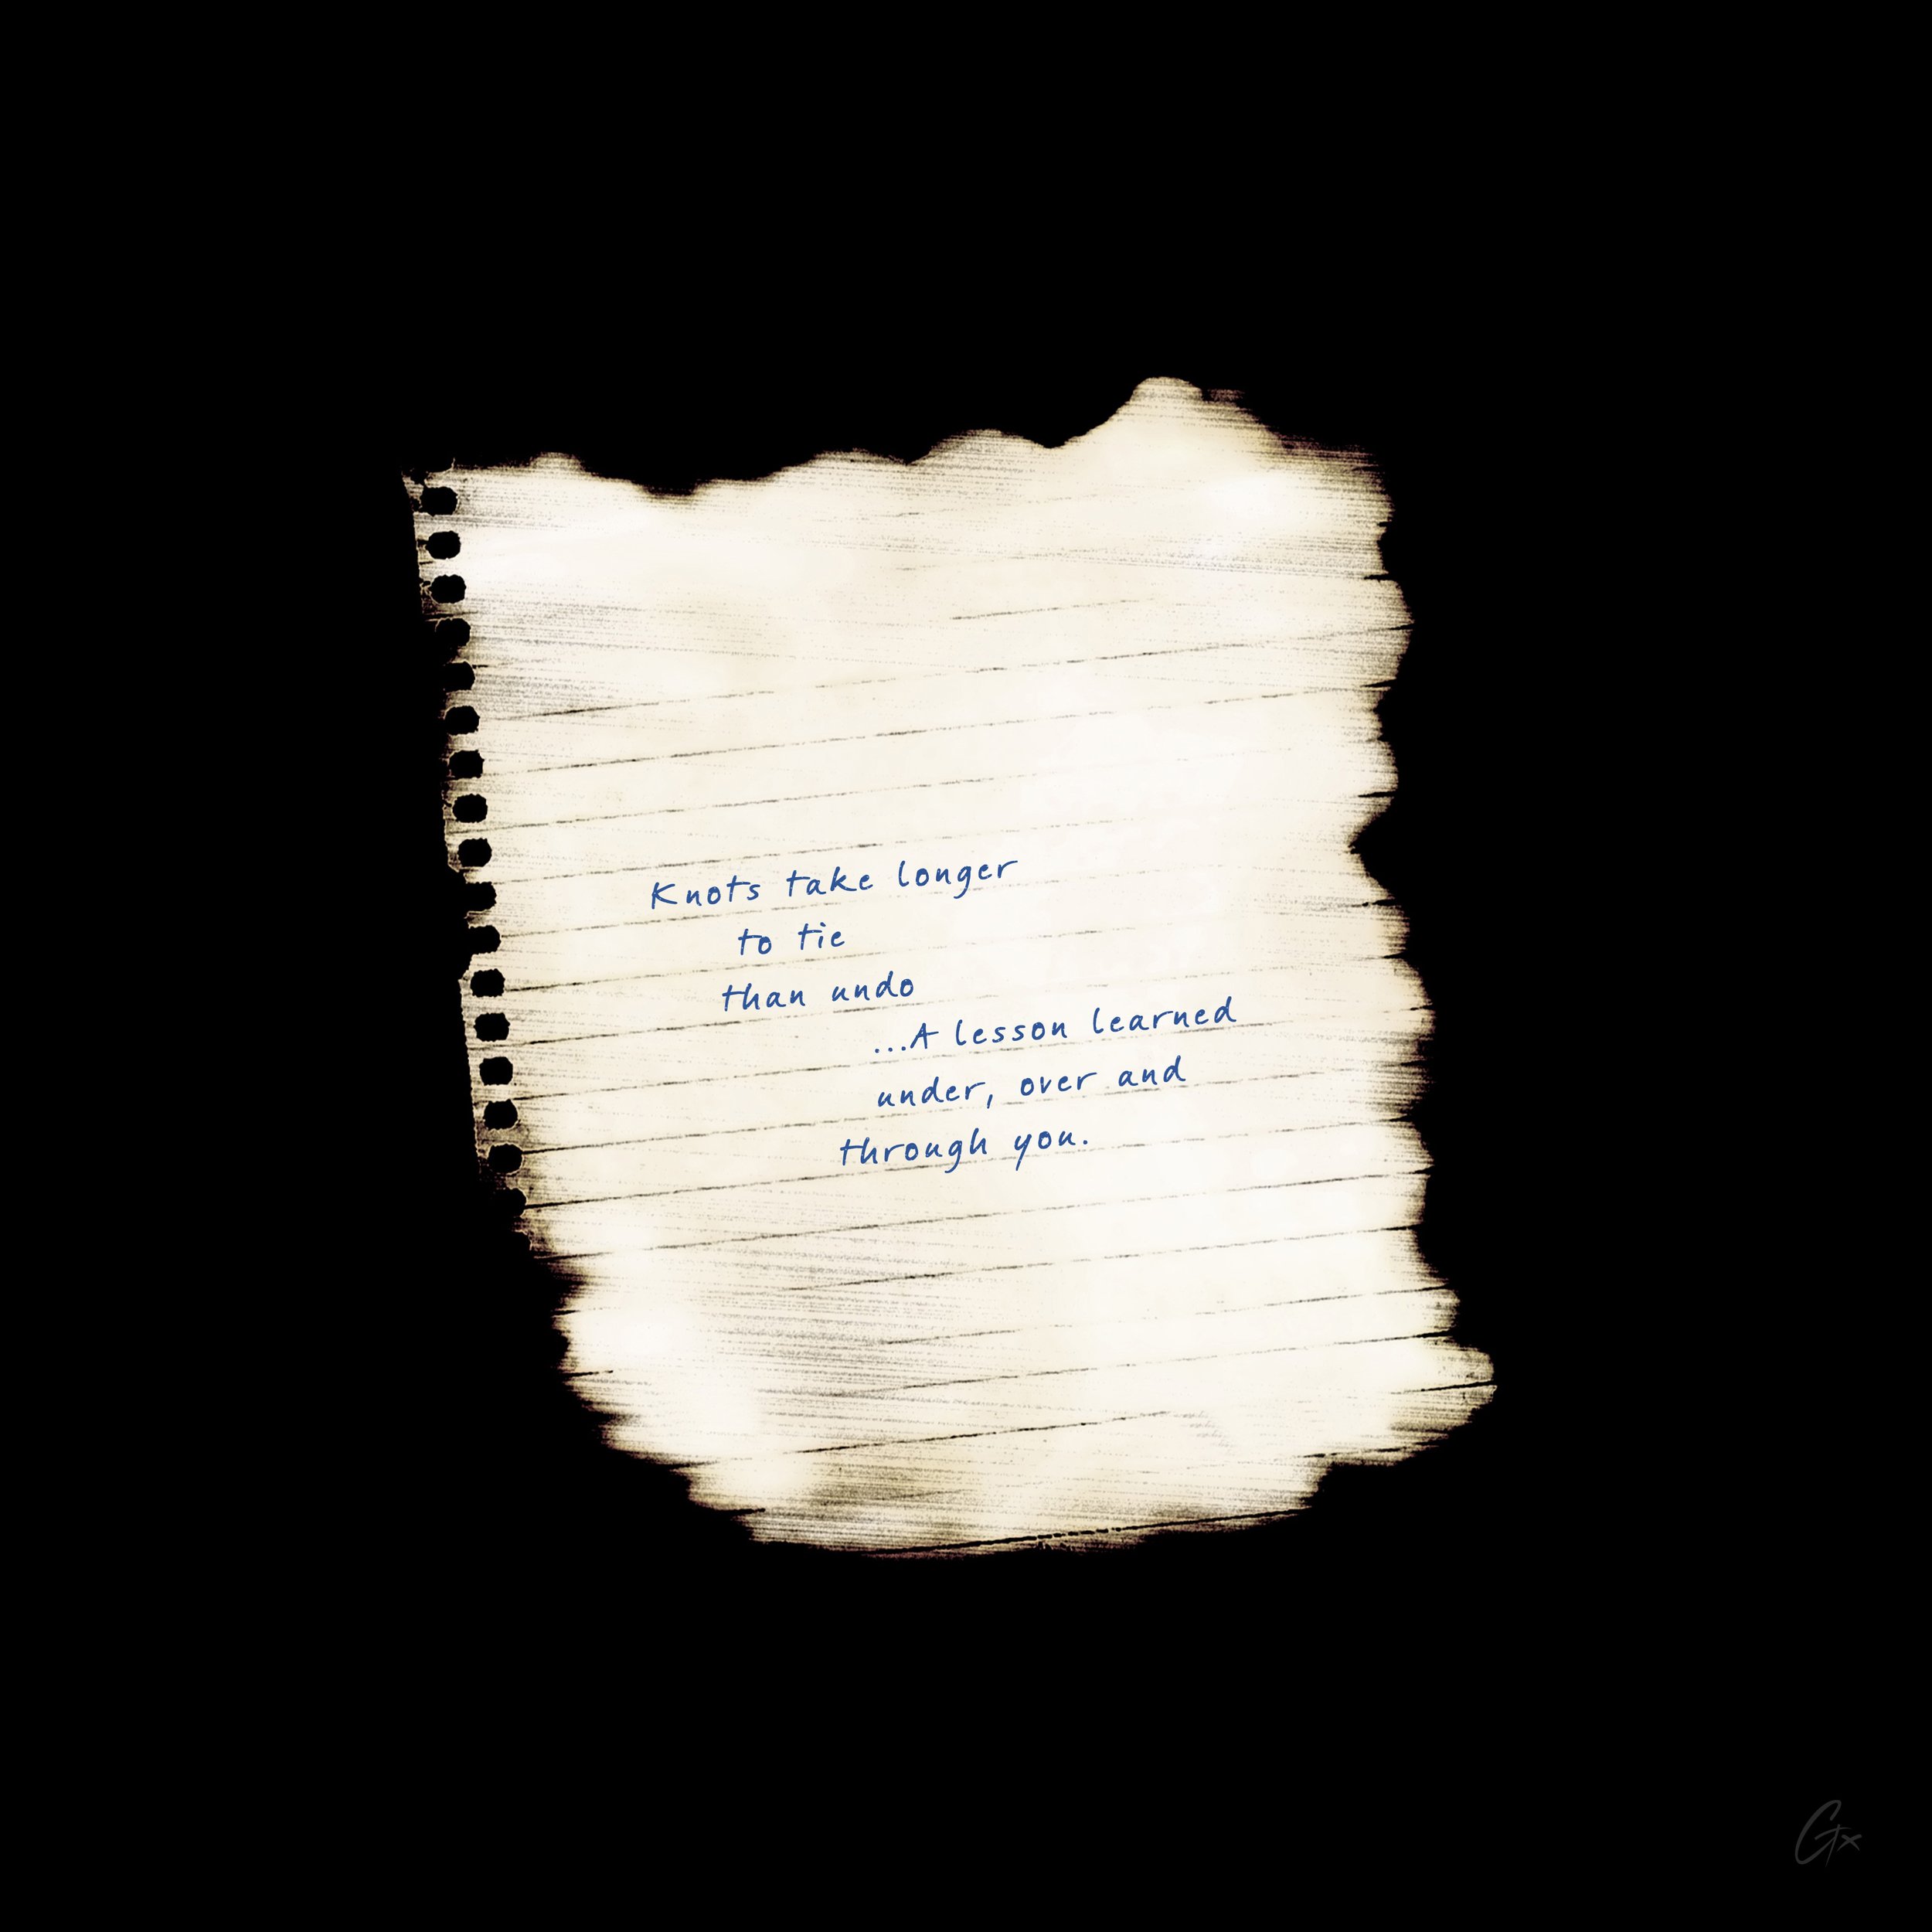 Knots take longer
to tie
than undo
...A lesson learned
under, over and
through you.
Gx